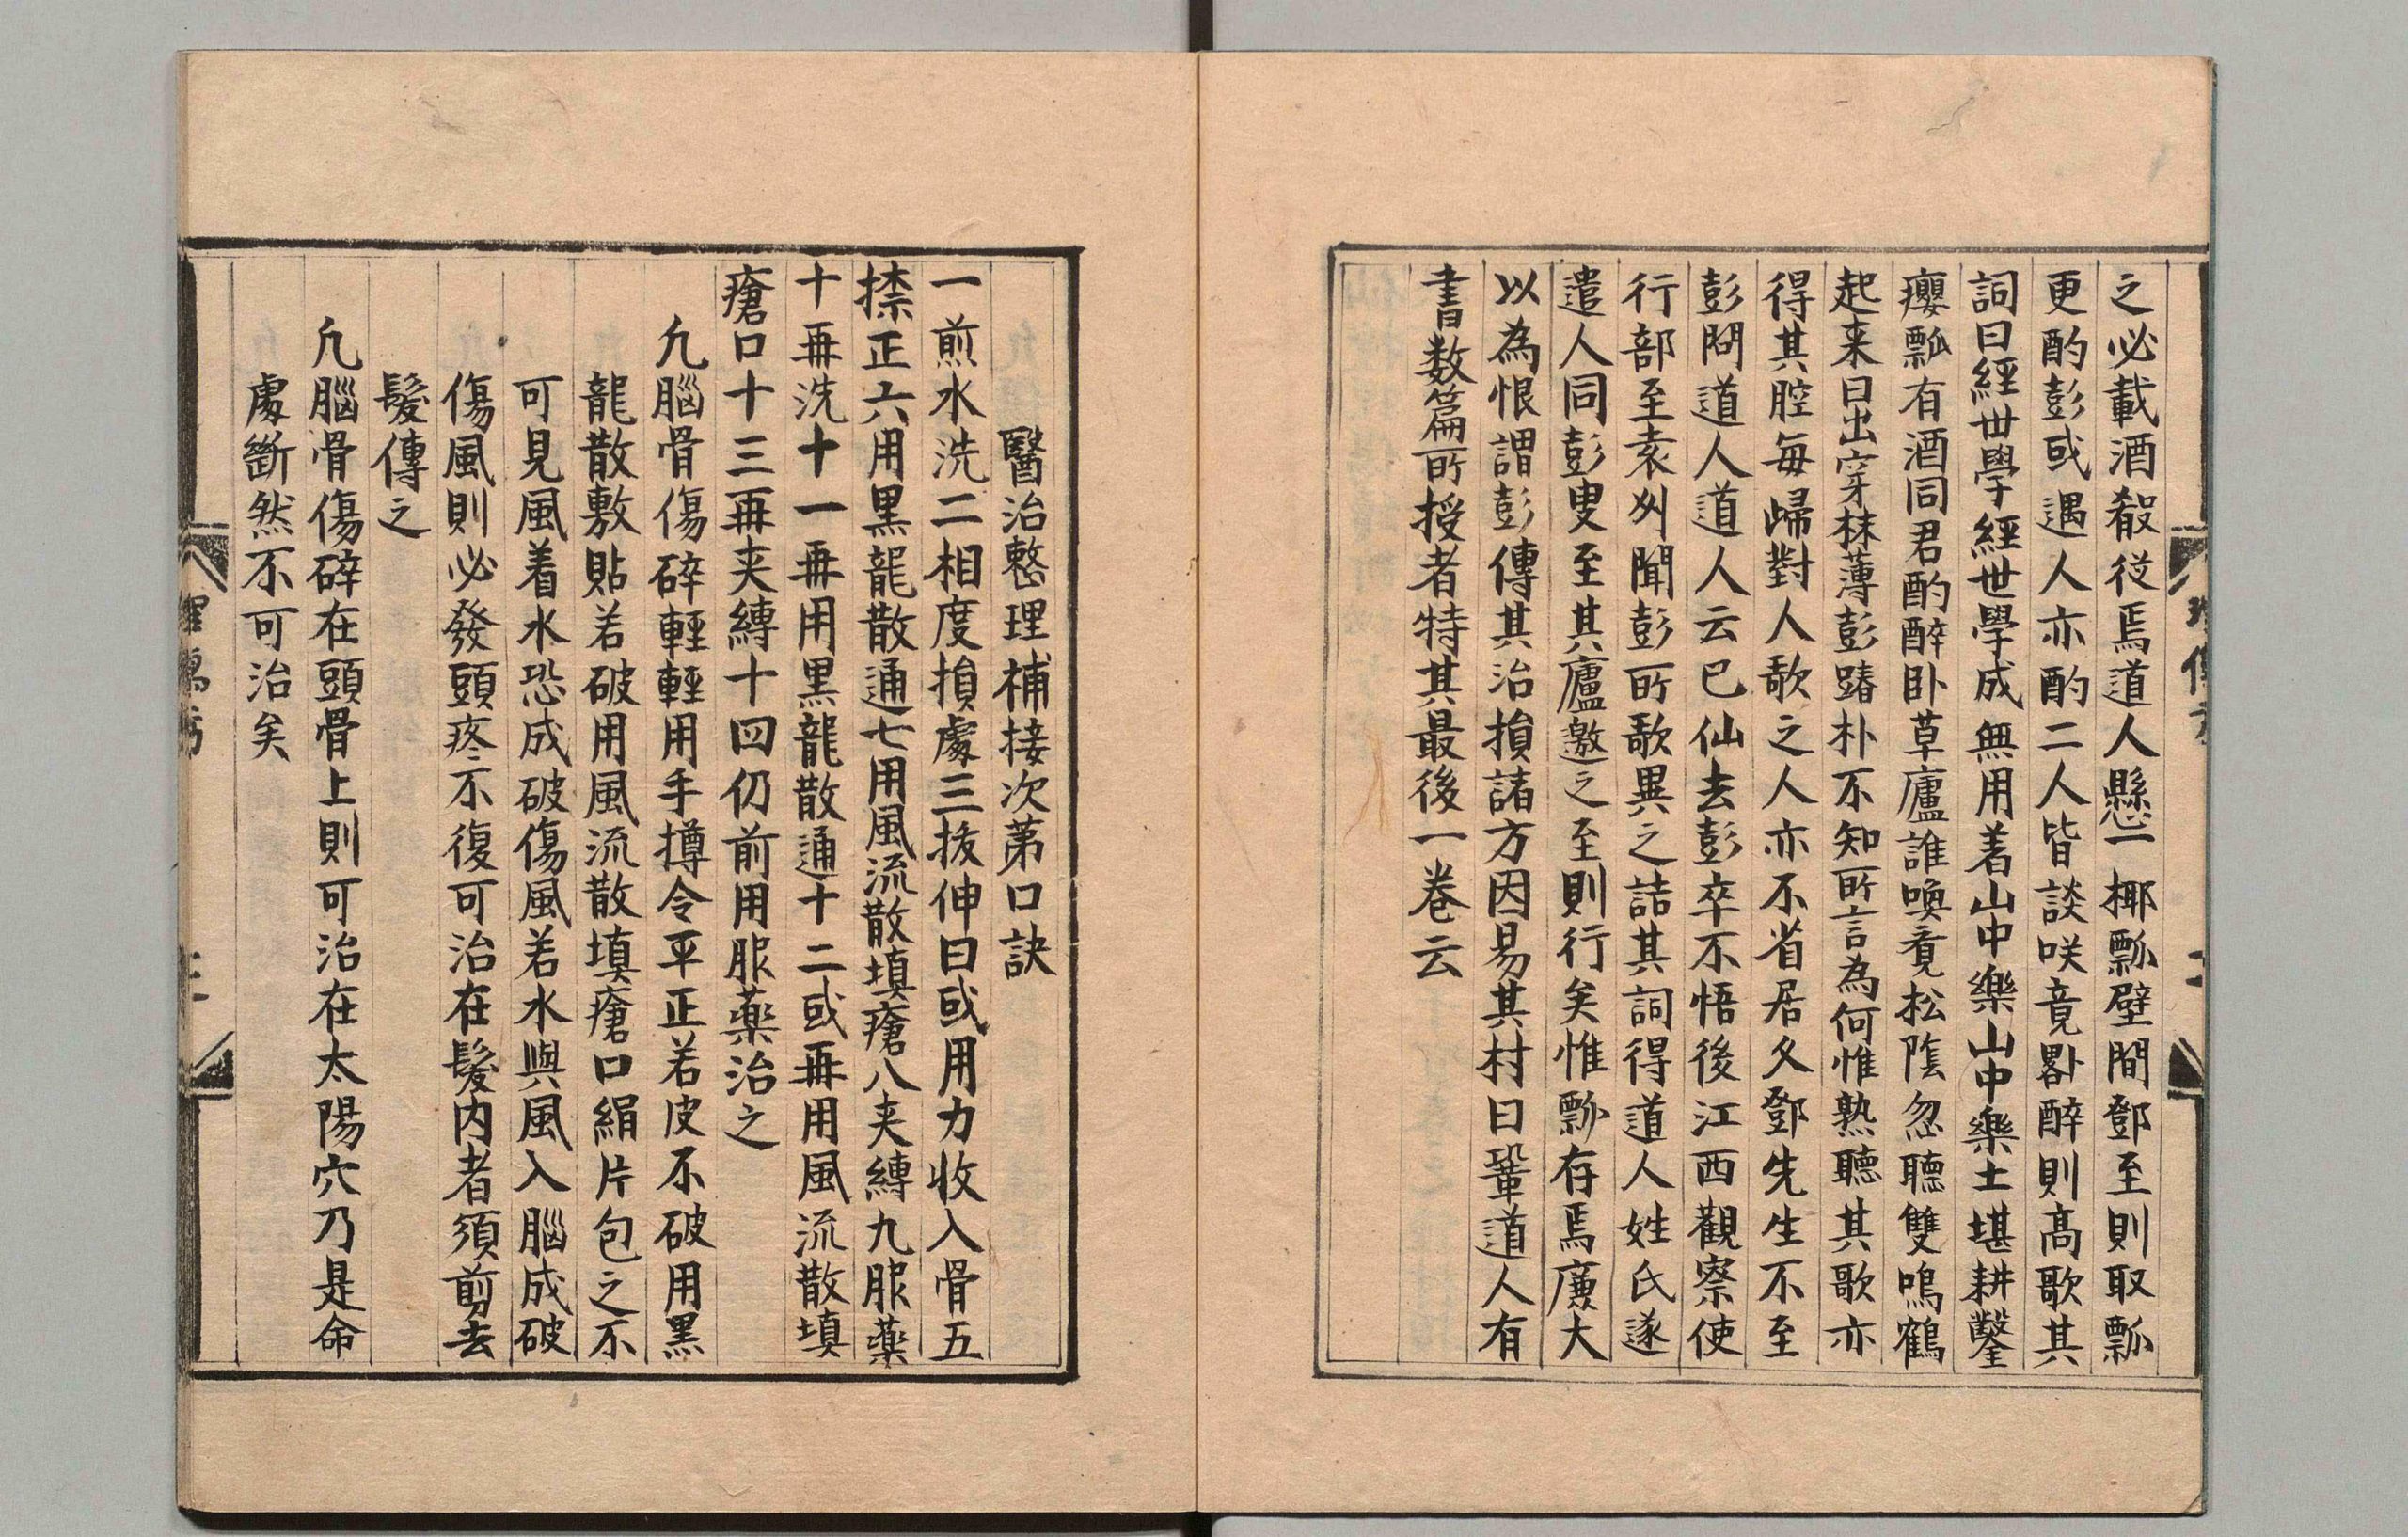 之必載酒殽從焉道人懸一椰瓢壁間鄧至則取瓢
更酌彭或遇人亦酌二人皆談咲竟畧醉則髙歌其
詞曰經世學經世學成無用着山中樂山中樂土堪耕鑿
癭瓢有酒同君酌醉卧草廬誰喚覔松隂忽聽雙鳴鶴
起来日出穿林薄彭踳朴不知所言為何惟熟聽其歌亦
得其腔毎歸對人歌之人亦不省居久鄧先生不至
彭問道人道人云已仙去彭卒不悟後江西觀察使
行部至袁州聞彭所歌異之詰其詞得道人姓氏遂
遣人同彭叟至其廬邀之至則行矣惟瓢存焉廉大
以為恨謂彭傳其治損諸方因易其村曰鞏道人有
書数篇所授者特其最後一卷云
醫治整理補接次第口訣
一煎水洗二相度損處三抜伸曰或用力收入骨五
捺正六用黒龍散通七用風流散填瘡八夹縛九服薬
十再洗十一再用黒龍散通十二或再用風流散填
瘡口十三再夹縛十四仍前用服薬治之
凢腦骨傷碎輕輕用手撙令平正若皮不破用黒
龍散敷貼若破用風流散填瘡口絹片包之不
可見風着水恐成破傷風若水與風入腦成破
傷風則必發頭疼不復可治在髮内者須剪去
髮傳之
凢腦骨傷碎在頭骨上則可治在太陽穴乃是命
處斷然不可治矣